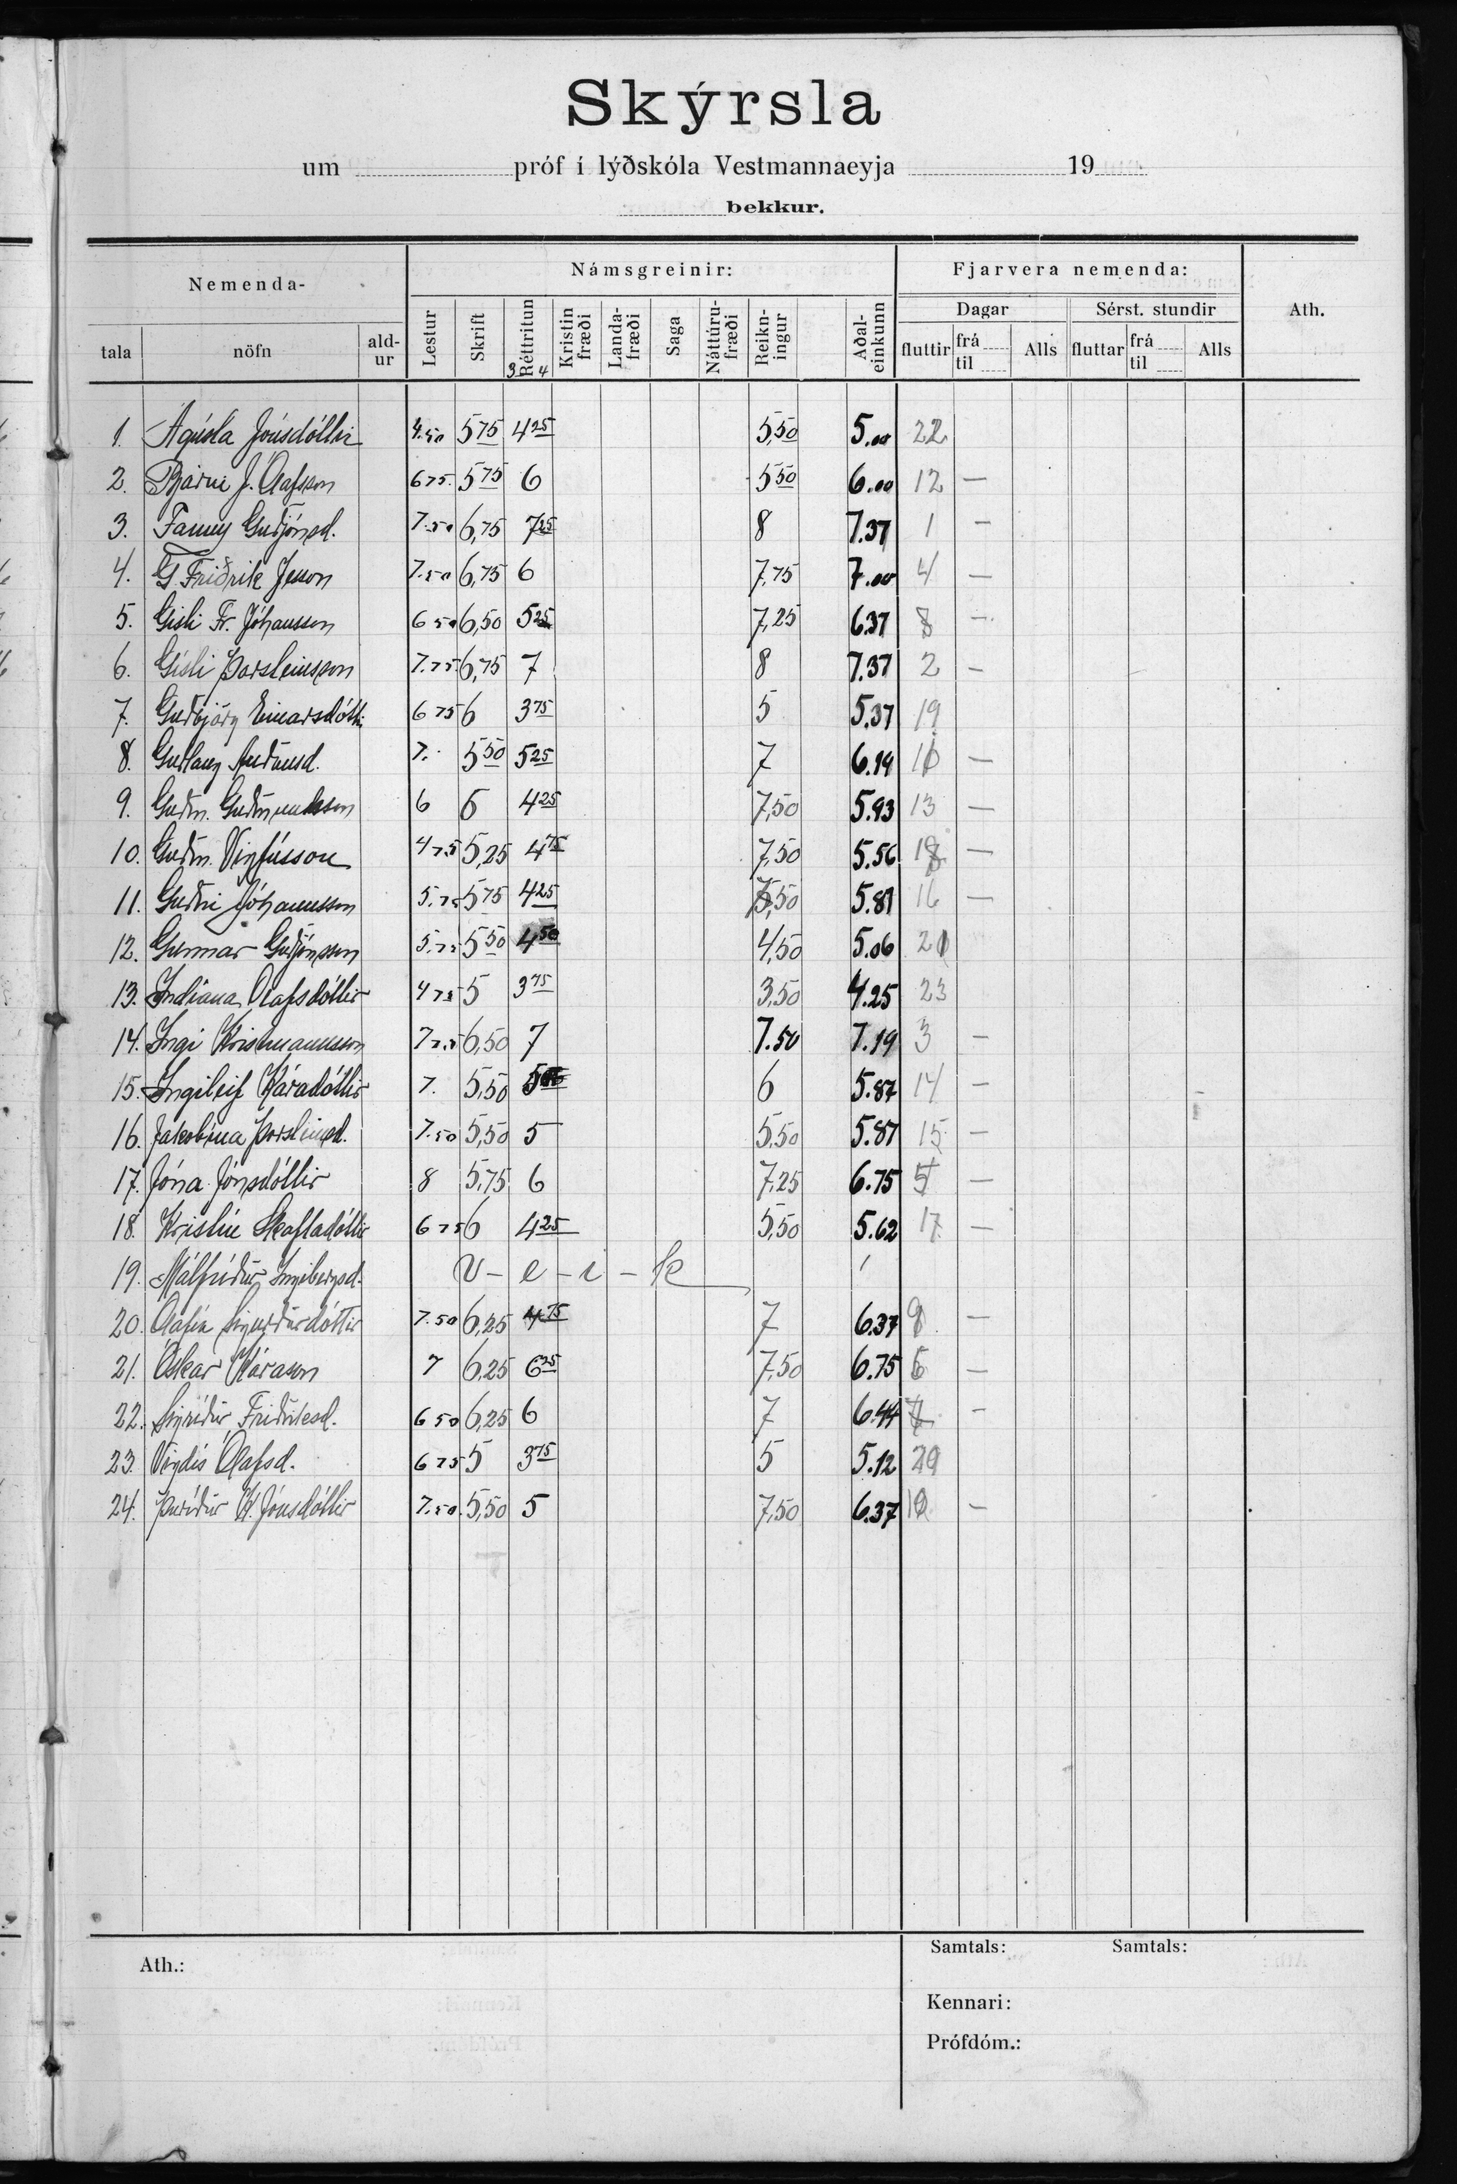 Skýrsla
um próf í lýðskóla Vestmannaeyja 19
bekkur.
Nemenda- Námsgreinir: Fjarvera nemenda: Ath.
tala nöfn ald-ur Lestur Skrift Réttritun Kristin fræði Landa-fræði Saga Náttúru-fræði Reikn-ingur Aðal-einkunn Dagar Sérst. stundir
fluttir frá til Alls fluttar frá til Alls
3 4
1. Ágústa Jónsdóttir 4.50 5 75 4 25 5,50 5.00 22
2. Bjarni J. Ólafsson 6 75 5 75 6 5 50 6.00 12 —
3. Fanny Guðjónsd. 7.50 6,75 7 25 8 7.37 1 —
4. G. Friðrik Jesson 7.50 6,75 6 7,75 7.00 4 —
5. Gísli Fr. Jóhansson 6 50 6,50 5 25 7,25 6.37 8 —
6. Gísli Þorsteinsson 7.75 6,75 7 8 7.37 2 —
7. Guðbjörg Einarsdótti 6 75 6 3 75 5 5.37 19
8. Guðlaug Auðunsd. 7. 5 50 5 25 7 6.19 —
9. Guðm. Guðmundsson 6 6 4 25 7,50 5.93 13 —
10. Guðm. Vigfússon 4 75 5,25 4 75 7,50 5.56 18 —
11. Guðni Jóhannsson 5.75 5 75 4 25 5.81 16 —
12. Gunnar Guðjónsson 5.75 5 50 4 50 4,50 5.06
13. Indíana Ólafsdóttir 4 75 5 3 75 3,50 4.25 23
14. Ingi Kristmannsson 7 25 6,50 7 7.50 7.19 3 —
15. Ingileif Káradóttir 7. 5,50 6 5.87 14 —
16. Jakobína Þorsteinsd. 7.50 5,50 5 5,50 5.87 15 —
17. Jóna Jónsdóttir 8 5,75 6 7,25 6.75 5 —
18. Kristín Skaftadóttir 6 75 6 4 25 5,50 5.62 17 —
19. Málfríður Ingibergsd. v - e - i - k
20. Ólafía Sigurðurdóttir 7.50 6,25 4 75 7 6.37 9 —
21. Óskar Kárason 7 6,25 6 25 7,50 6.75 6 —
22. Sigríður Friðriksd. 6 50 6,25 6 7 6.44 7 —
23. Vigdís Ólafsd. 6 75 5 3 75 5 5.12
24. Þuríður K. Jónsdóttir 7.50 5,50 5 7,50 6.37 10 —
Ath.: Samtals: Samtals:
Kennari:
Prófdóm.: